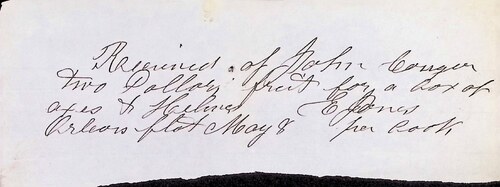 Recieved of John Conger
two Dollars freit for a box of
axes & Helves E Jones
Orleans flat May 8 per Cook